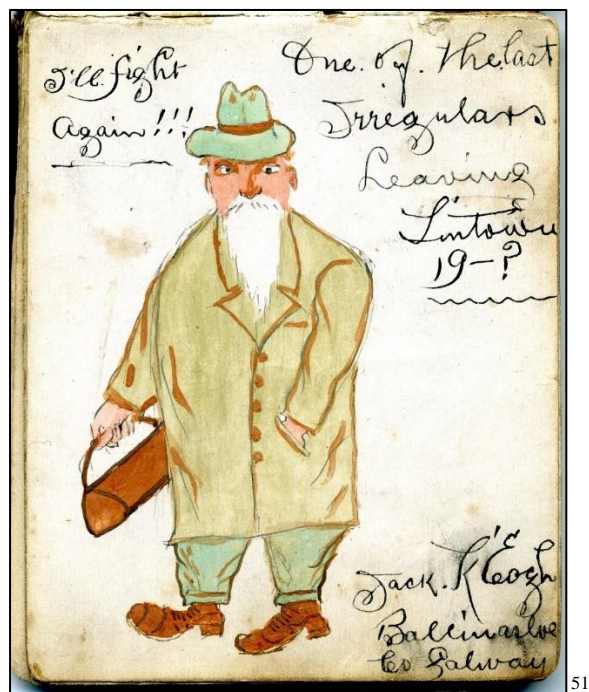 I'll fight
Again!!!
One. of. The last
Irregulars
Leaving
Tintown
19-?
Jack. K'Eogh
Ballinasloe
Co Galway
51